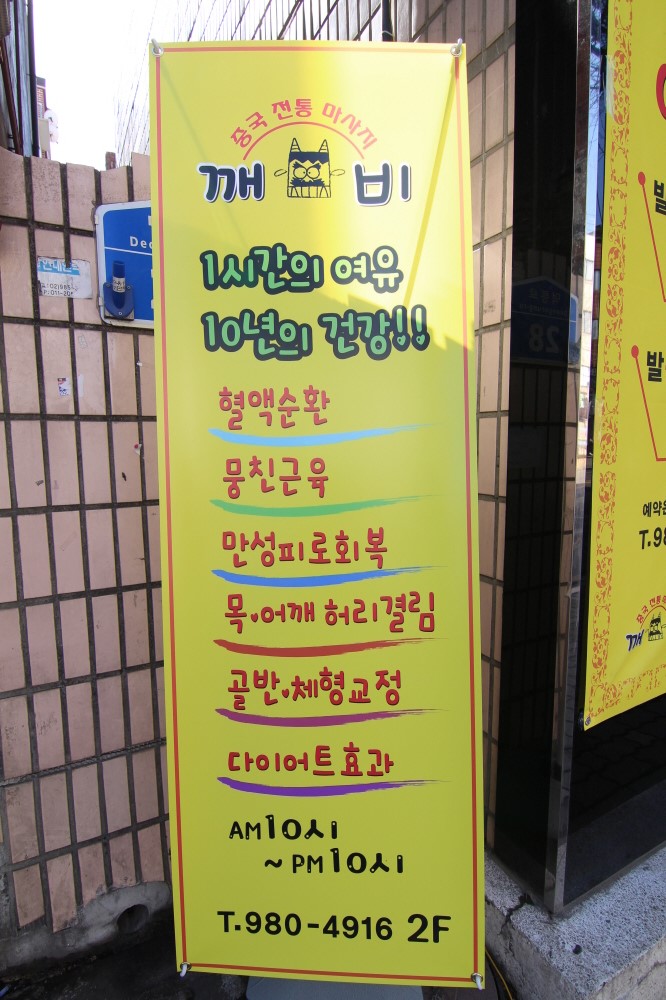 중국 전통 마사지
깨비
1시간의 여유
10년의 건강!!
혈액순환
뭉친근육
만성피로회복
목,어깨 허리결림
골반,체형교정
다이어트효과
AM10시
~PM10시
T.980-4916 2F
예약
T.98
중국 전통
깨
28